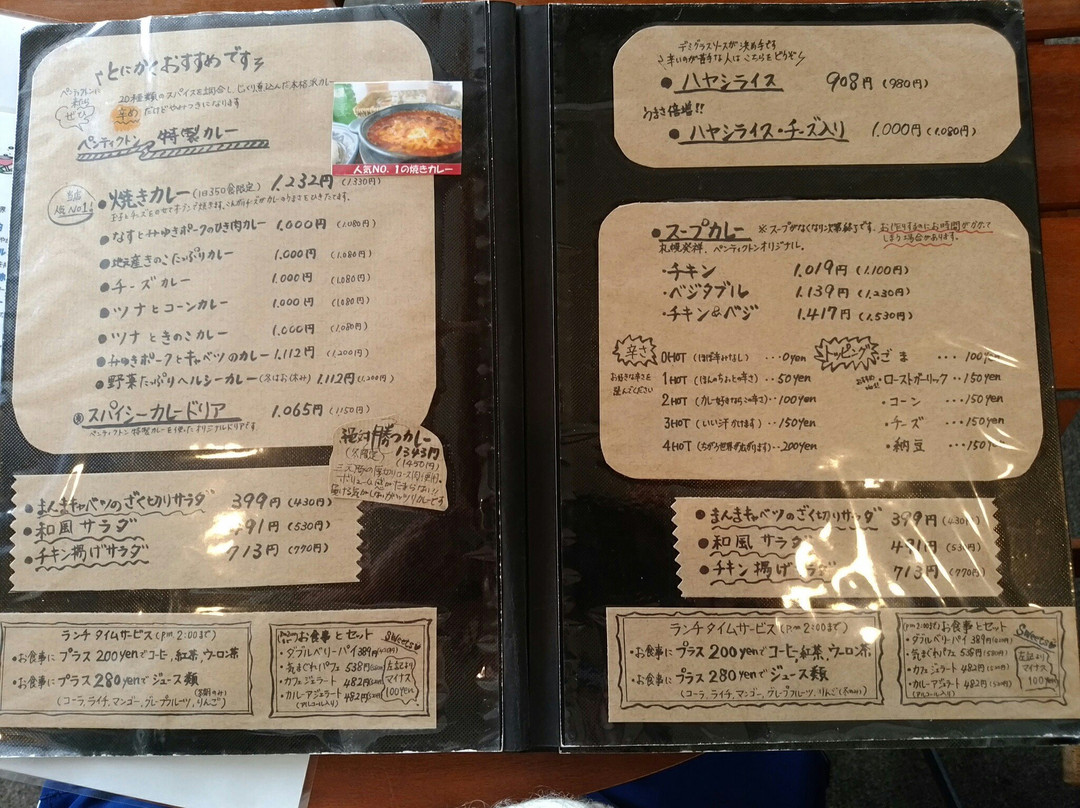 とにかくおすすめです
ペンティクトンに来たらぜひ
20種類のスパイスを調合し、じっくり煮込んだ本格派カレー
辛めだけどやみつきになります
ペンティクトン特製カレー
人気NO.1の焼きカレー
当店人気No1!
●焼きカレー(1日350食限定) 1,232円 (1,330円)
●なすとみゆきポークのひき肉カレー 1,000円 (1,080円)
●地元産きのこたっぷりカレー 1,000円 (1,080円)
●チーズカレー 1,000円 (1,080円)
●ツナとコーンカレー 1,000円 (1,080円)
●ツナときのこカレー 1,000円 (1,080円)
●みゆきポークとキャベツのカレー 1,112円 (1,200円)
●野菜たっぷりヘルシーカレー(冬はお休み) 1,112円 (1,200円)
●スパイシーカレードリア 1,065円 (1,150円)
ペンティクトン特製カレーを使ったオリジナルドリアです
絶対勝つカレー
1343円
(1450円)
●まんまキャベツのざく切りサラダ 399円 (430円)
●和風サラダ 491円 (530円)
●チキン揚げサラダ 713円 (770円)
ランチタイムサービス(pm 2:00まで)
・お食事にプラス200yenでコーヒー,紅茶,ウーロン茶
・お食事にプラス280yenでジュース類
(コーラ,ライチ,マンゴー,グレープフルーツ,りんご)
お食事とセット
Sweets
・ダブルベリーパイ 389円
・気まぐれパフェ 538円
・カフェジェラート 482円
・カルーアジェラート 482円
(アルコール入り)
左記よりマイナス100yen
デミグラスソースが決め手です
辛いのが苦手な人はこちらをどうぞ
●ハヤシライス 908円 (980円)
うまさ倍増!!
●ハヤシライス・チーズ入り 1,000円 (1,080円)
●スープカレー ※スープがなくなり次第終了です。お作りするのにお時間がかかってしまう場合があります。
札幌発祥、ペンティクトンオリジナル。
・チキン 1,019円 (1,100円)
・ベジタブル 1,139円 (1,230円)
・チキン&ベジ 1,417円 (1,530円)
辛さ
お好きな辛さを選んでください
0HOT (ほぼ辛みなし) ・・・0yen
1HOT (ほんのちょっとの辛さ)・・50yen
2HOT (カレー好きならこの辛さ)・・100yen
3HOT (いい汗かけます)・・150yen
4HOT (ちがう世界が広がります)・・200yen
トッピング
・ごま ・・・100yen
・ローストガーリック・・150yen
・コーン ・・・150yen
・チーズ ・・・150yen
・納豆 ・・・150yen
●まんまキャベツのざく切りサラダ 399円 (430円)
●和風サラダ 491円 (530円)
●チキン揚げサラダ 713円 (770円)
ランチタイムサービス(pm 2:00まで)
・お食事にプラス200yenでコーヒー,紅茶,ウーロン茶
・お食事にプラス280yenでジュース類
(コーラ,ライチ,マンゴー,グレープフルーツ,りんご)
(pm 2:00まで)お食事とセット
Sweets
・ダブルベリーパイ 389円
・気まぐれパフェ 538円
・カフェジェラート 482円
・カルーアジェラート 482円
(アルコール入り)
左記よりマイナス100yen